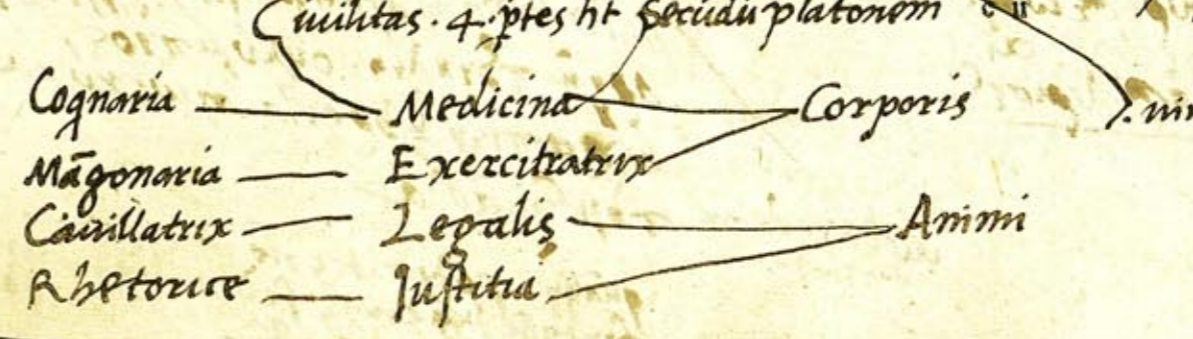 Ciuilitas . 4 . ptes ht Secudu platonem
Coqnaria Medicina Corporis
Mãgonaria Exercitratrix
Cauillatrix Legalis Animi
Rhetorice Iustitia